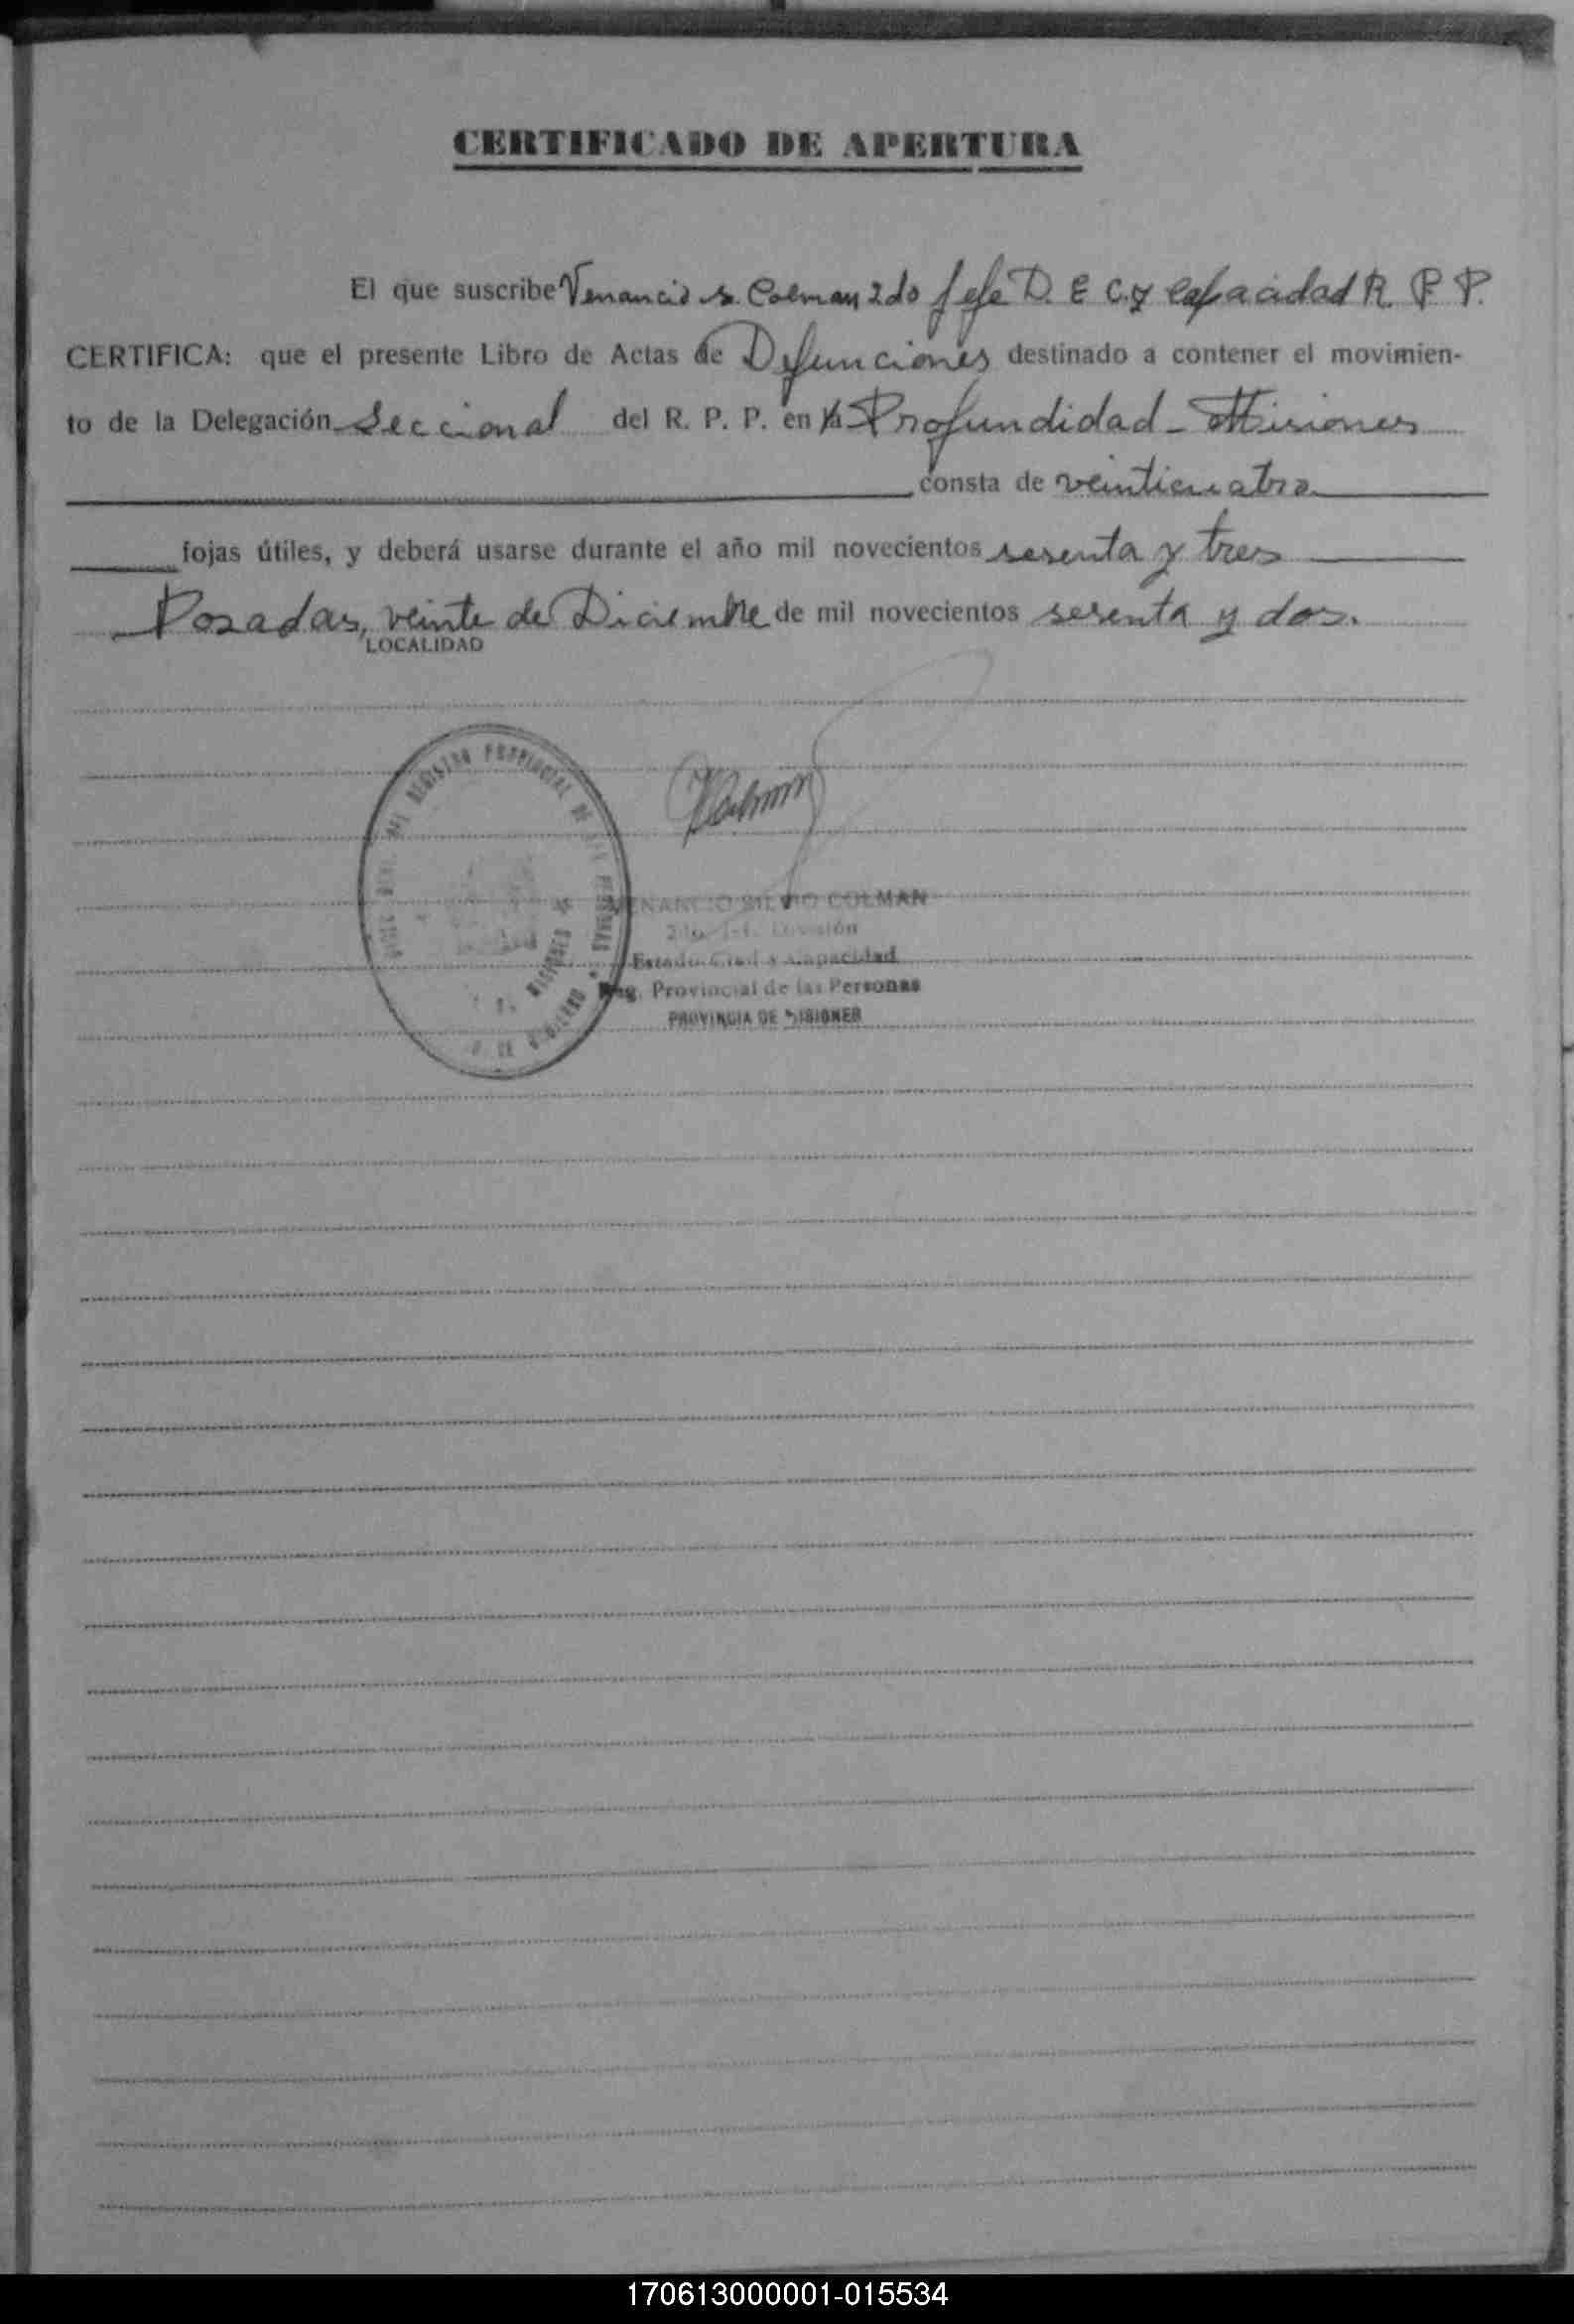 CERTIFICADO DE APERTURA
El que suscribe Venancio S. Colman 2do Jefe D. E C. y Capacidad R. P. P.
CERTIFICA: que el presente Libro de Actas de Defunciones destinado a contener el movimien-
to de la Delegación Seccional del R. P. P. en Profundidad - Misiones
consta de veinticuatro
fojas útiles, y deberá usarse durante el año mil novecientos sesenta y tres
Posadas, veinte de Diciembre de mil novecientos sesenta y dos.
LOCALIDAD
DEL REGISTRO PROVINCIAL DE LAS PERSONAS
MISIONES
VENANCIO SILVIO COLMAN
2do. Jefe División
Estado Civil y Capacidad
Reg. Provincial de las Personas
PROVINCIA DE MISIONES
170613000001-015534